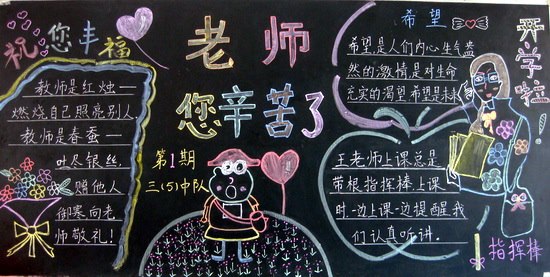 祝您幸福
教师是红烛—
燃烧自己照亮别人
教师是春蚕—
吐尽银丝
赠他人
御寒向老
师敬礼!
老师
您辛苦了
第1期
三(5)中队
希望
希望是人们内心生气盎
然的激情是对生命
充实的渴望希望是未来
王老师上课总是
带根指挥棒.上课
时一边上课一边提醒我
们认真听讲.
开学啦!
指挥棒